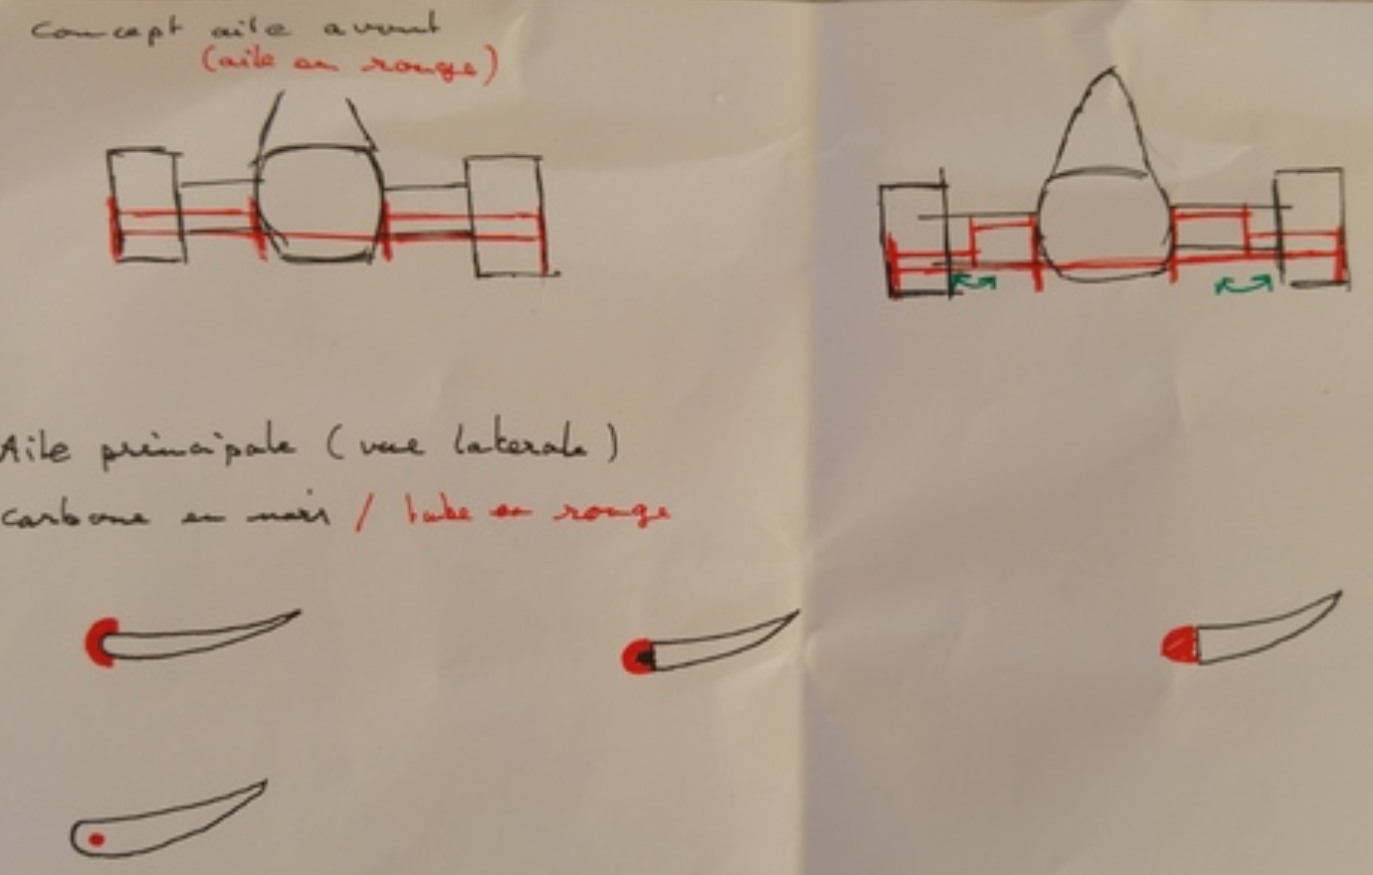 Concept aile avant
(aile en rouge)
Aile principale (vue laterale)
carbone en noir / tube en rouge